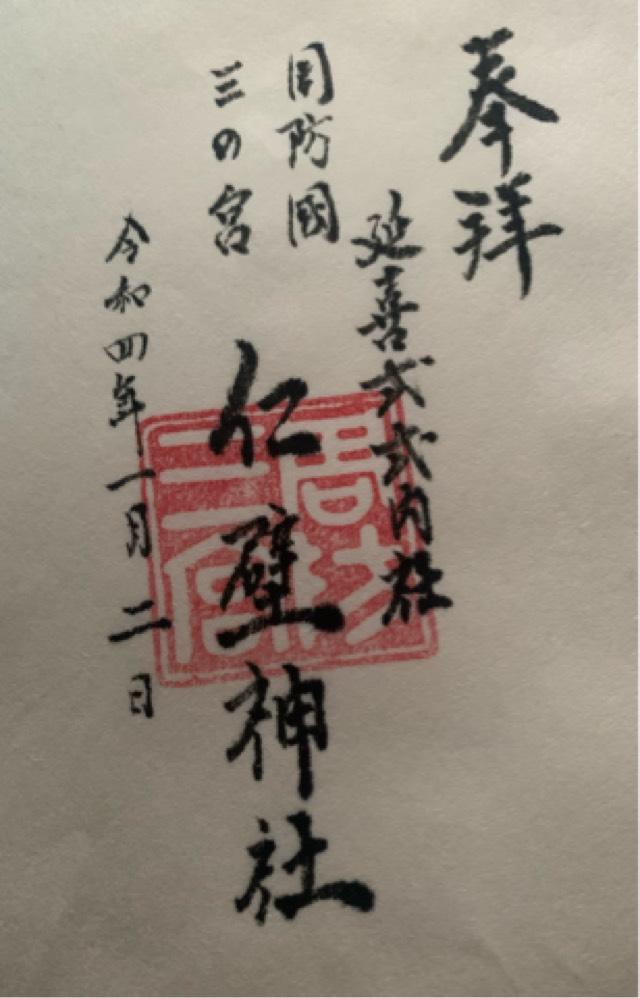 奉拝
延喜式式内社
周防國
三の宮
仁壁神社
令和四年一月二日
周防
三宮